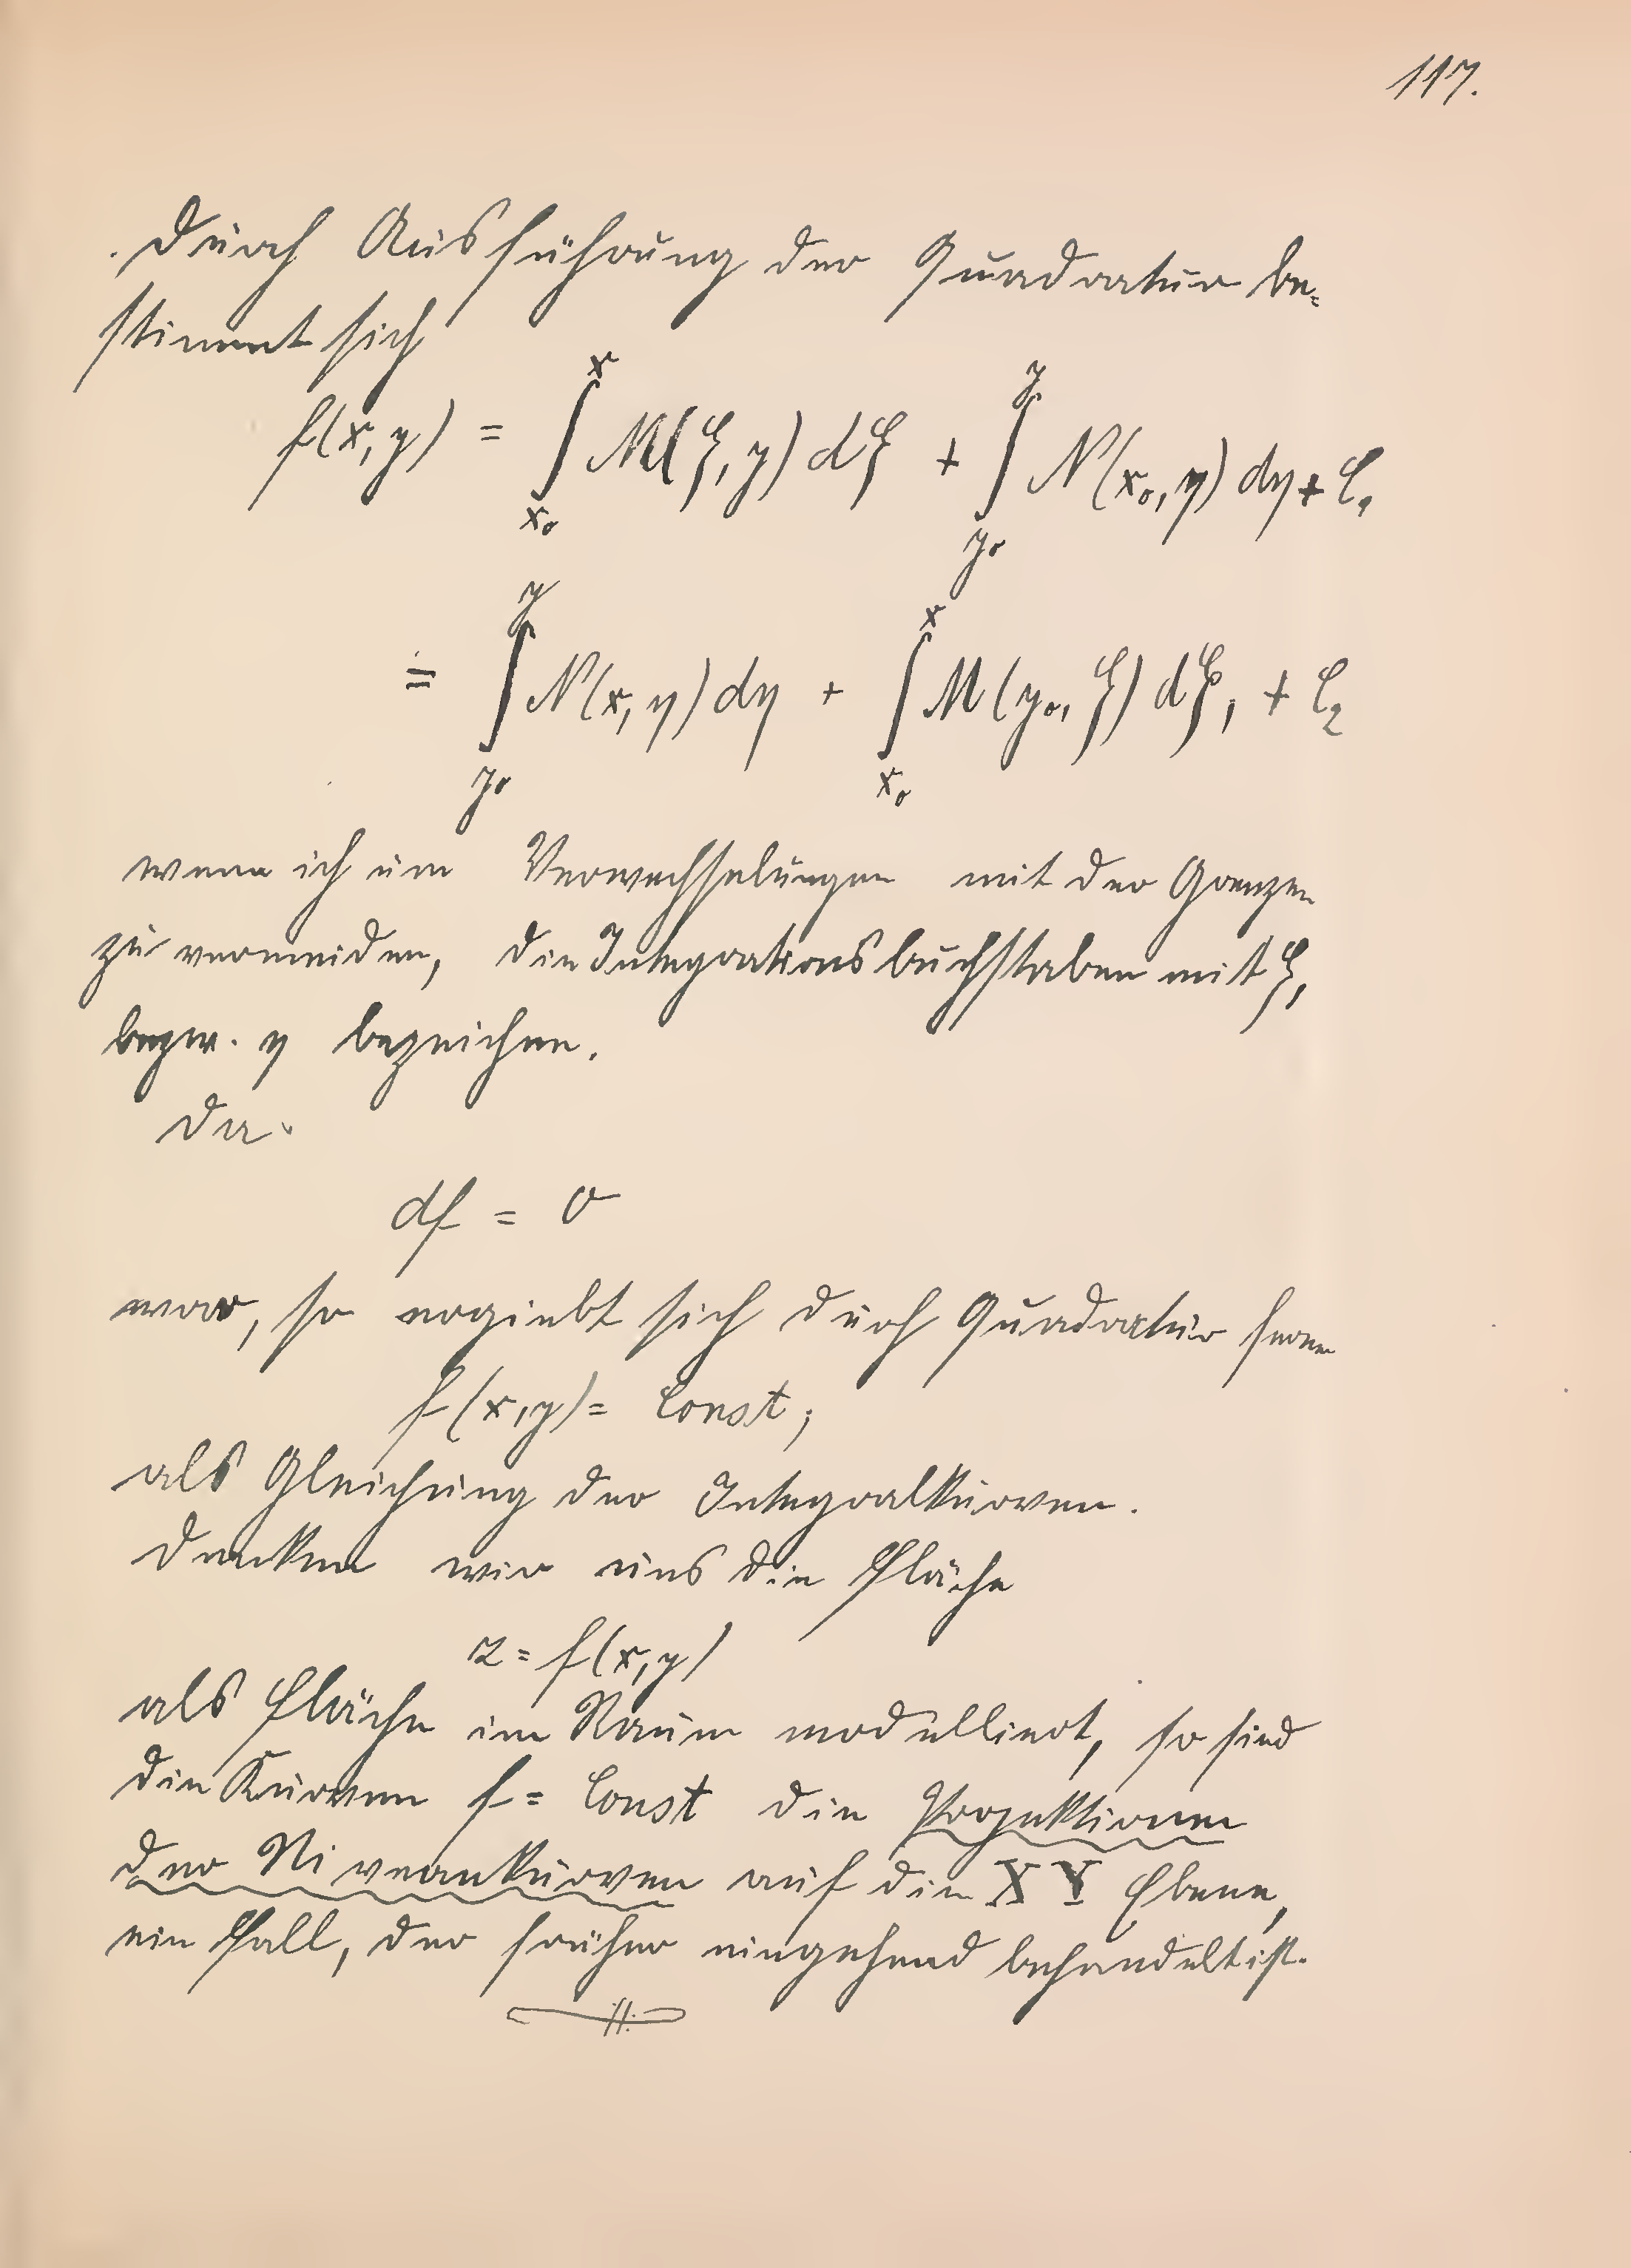 117.
Durch Ausführung der Quadratur be=
stimmt sich
f(x,y) = ∫_{x₀}^{x} M(ξ,y) dξ + ∫_{y₀}^{y} N(x₀,η) dη + C₁
= ∫_{y₀}^{y} N(x,η) dη + ∫_{x₀}^{x} M(y₀,ξ) dξ, + C₂
wenn ich um Verwechselungen mit den Grenzen
zu vermeiden, die Integrationsbuchstaben mit ξ,
bezw. η bezeichne.
Da
df = 0
war, so ergiebt sich durch Quadratur
f(x,y) = Const;
als Gleichung der Integralkurven.
Denken wir uns die Fläche
z = f(x,y)
als Fläche im Raum modelliert, so sind
die Kurven f = Const die Projektionen
der Niveaukurven auf die XY Ebene,
ein Fall, der früher eingehend behandelt ist.